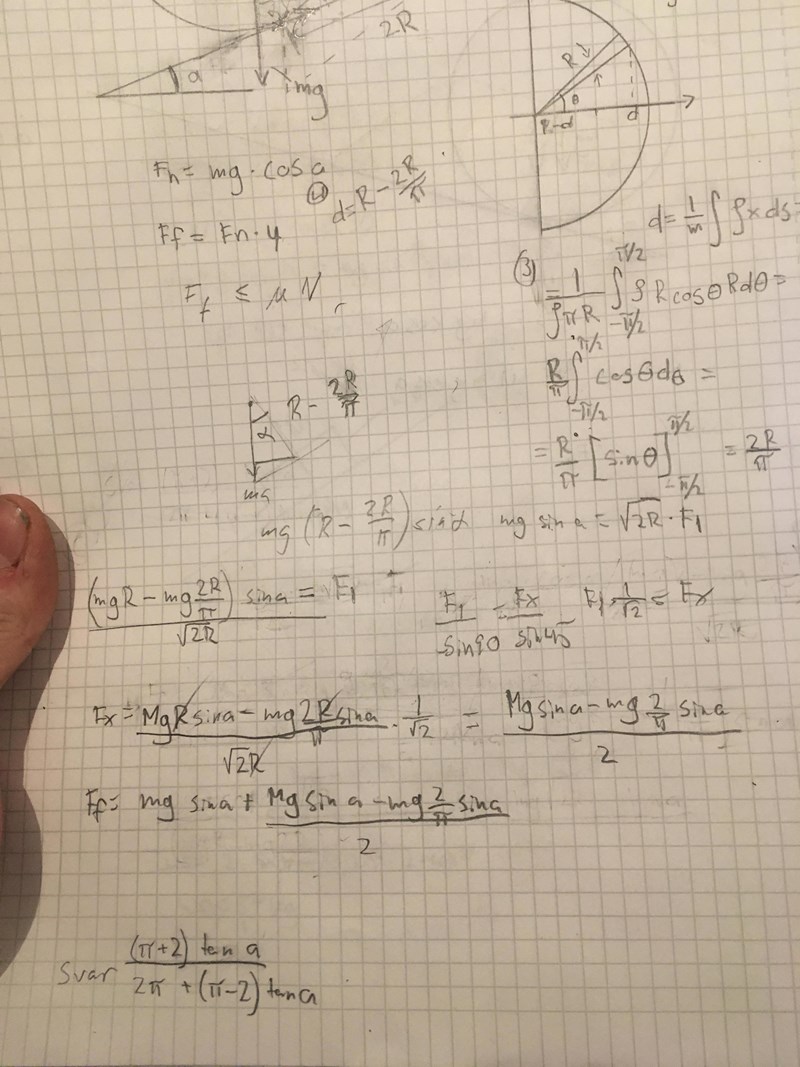 2R
a
mg
R
θ
d
Fn = mg · cos a
d = R - 2R/π
Ff = Fn · μ
d = 1/m ∫ ρ x ds =
Ff ≤ μ N
(3)
= 1/(ρπR) ∫_{-π/2}^{π/2} ρ R cosθ R dθ =
R/π ∫_{-π/2}^{π/2} cosθ dθ =
R - 2R/π
α
mg
= R/π [sinθ]_{-π/2}^{π/2} = 2R/π
mg (R - 2R/π) sin α
mg sin a = √2R · F1
(mgR - mg 2R/π) sin a / √2R = F1
F1/sin90 = Fx/sin45
F1 · 1/√2 = Fx
Fx = (MgR sin a - mg 2R/π sin a)/√2R · 1/√2 = (Mg sin a - mg 2/π sin a)/2
Ff = mg sin a + (Mg sin a - mg 2/π sin a)/2
Svar (π+2) tan a / (2π + (π-2) tan a)